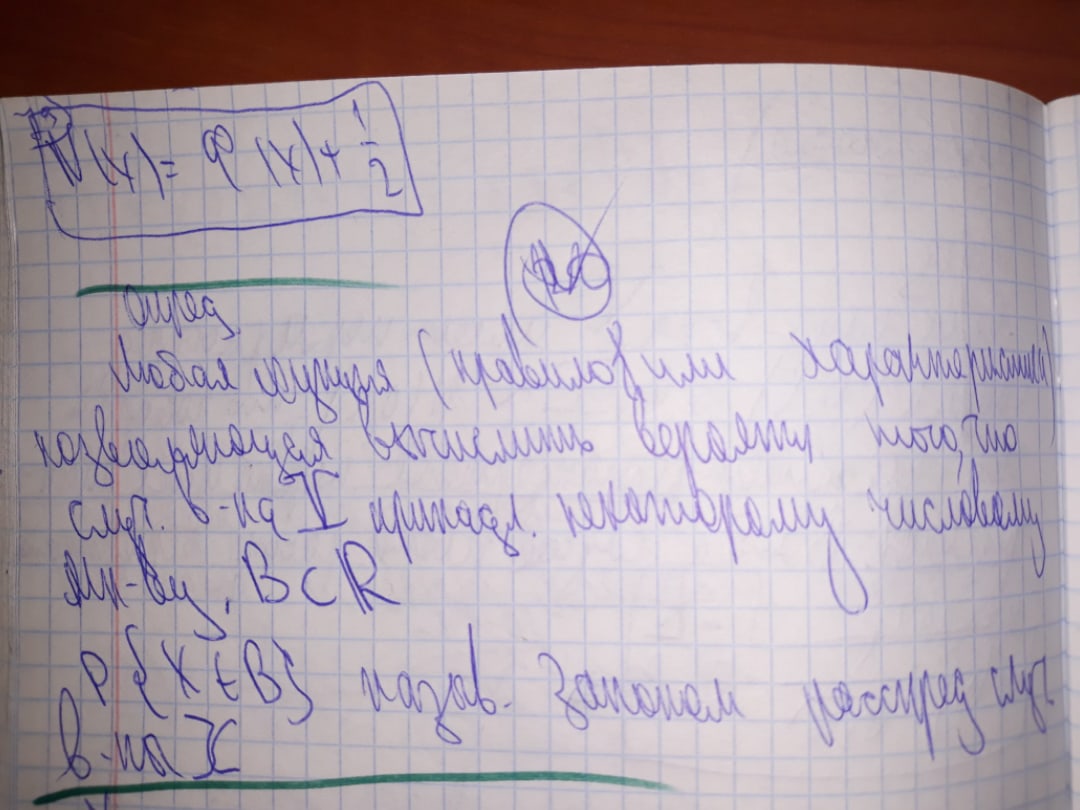 (x) = φ(x) + 1/2
опред
Любая функция (правило, или характеристика)
позволяющая вычислить вероятн того, что
случ. в-на X принадл. некоторому числовому
мн-ву, B⊂ℝ
P{X∈B} назыв. законом распред случ.
в-на X